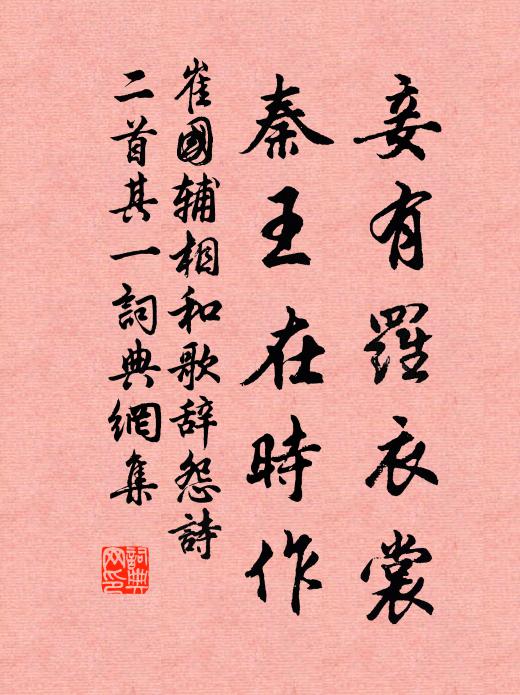 妾有羅衣裳
秦王在時作
崔國輔相和歌辞怨詩
二首其一詞典網集